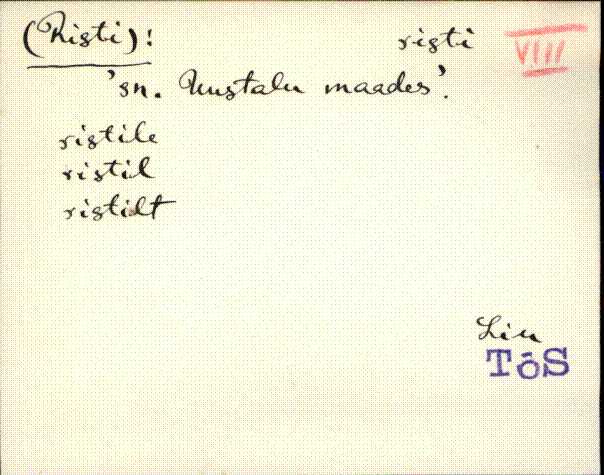 (Risti): risti VIII
'sn. Uustalu maades'.
ristile
ristil
ristilt
Lin
TõS